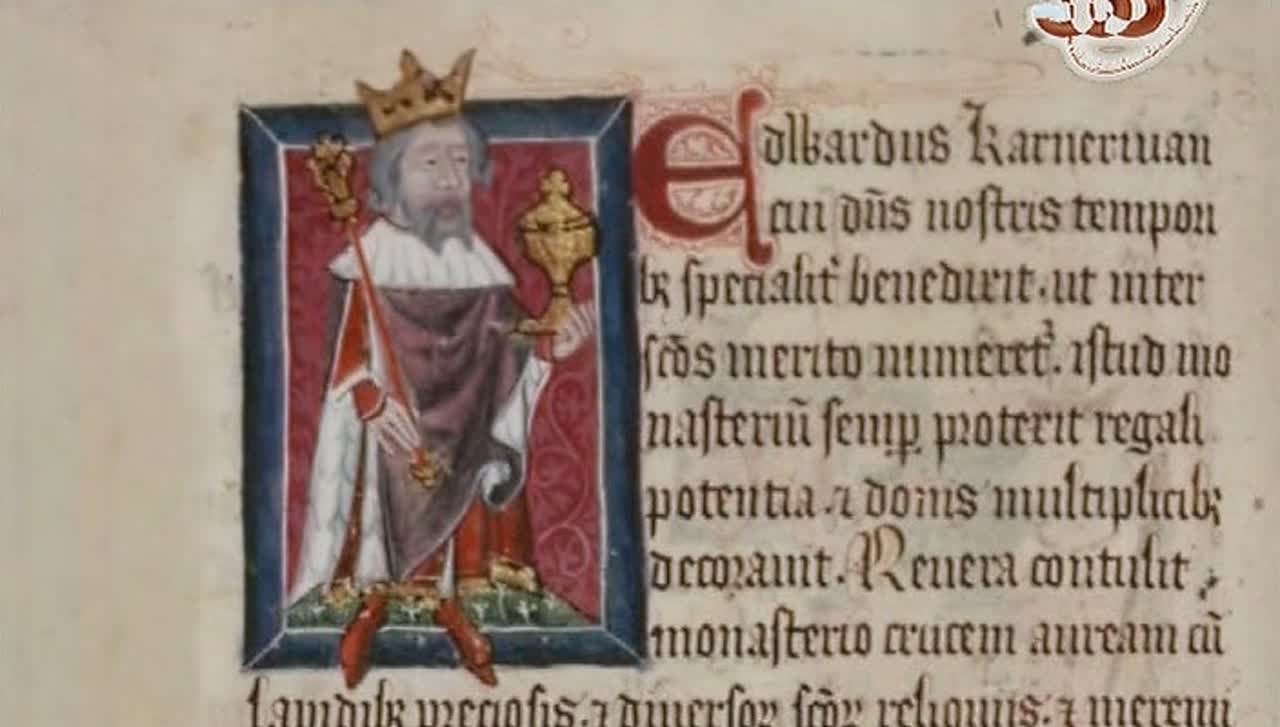 Edwardus Karneruan
cui dn̄s nostris tempori
bꝫ specialit᷑ benedixit . ut inter
sc̄os merito numeret᷑ . istud mo
nasteriū semꝑ protexit regali
potentia . ⁊ donis multiplicibꝫ
decorauit . Reuera contulit
monasterio crucem auream cū
lapidibꝫ preciosis . ⁊ diuersoꝝ sc̄oꝝ reliquiis . ⁊